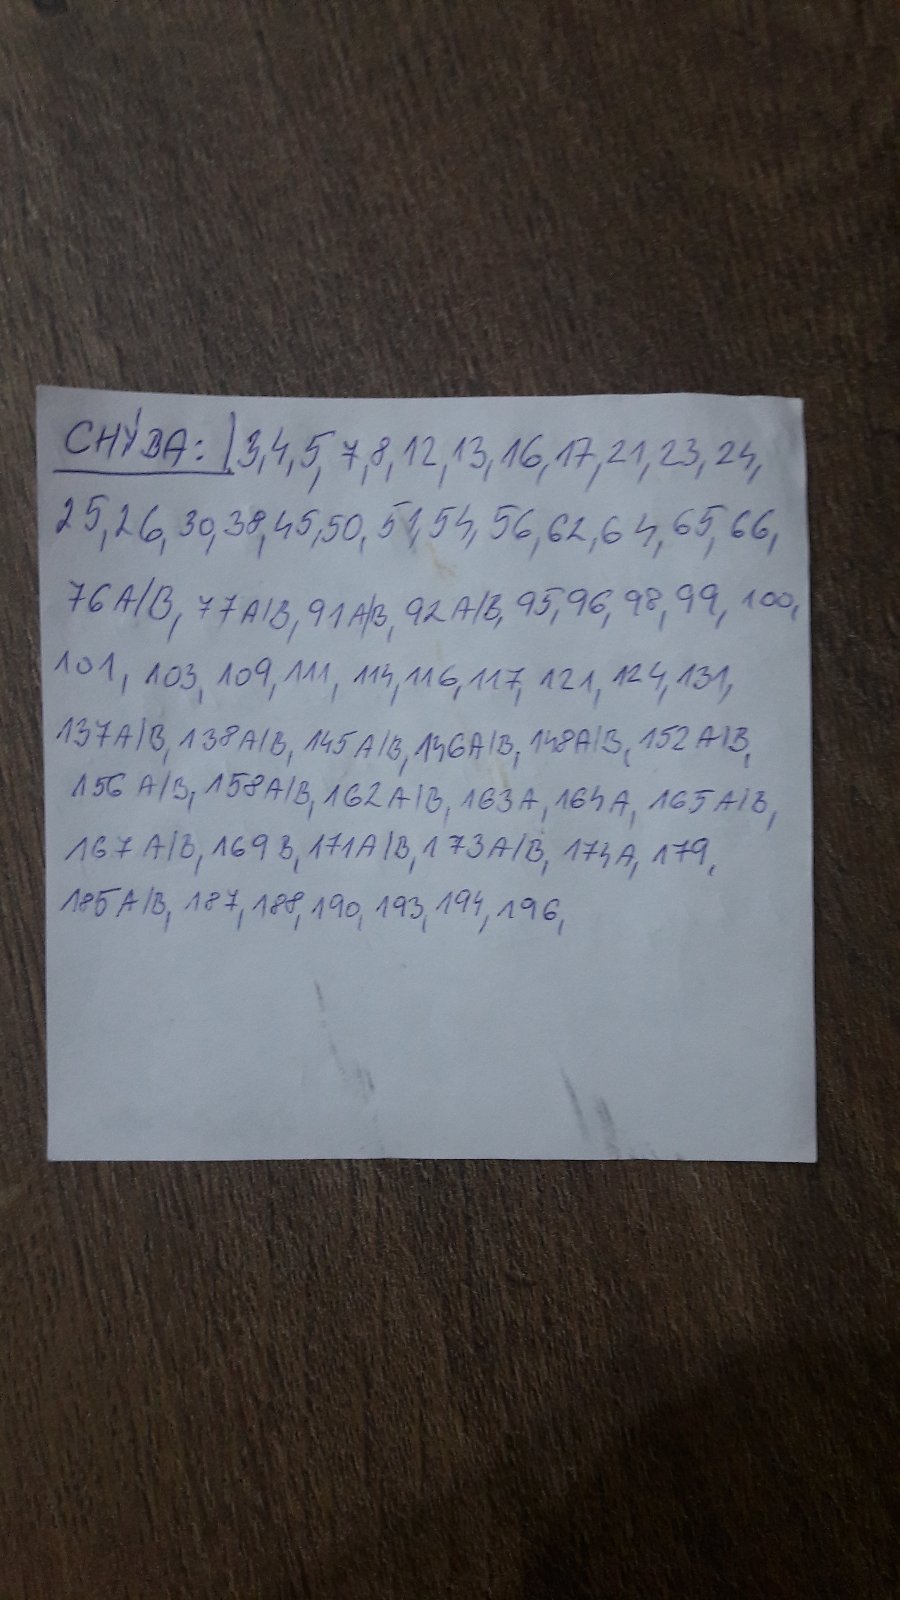 CHÝBA: 3,4,5,7,8,12,13,16,17,21,23,24,
25,26,30,38,45,50,51,54,56,62,64,65,66,
76A/B, 77A/B, 91A/B, 92A/B, 95,96,98,99, 100,
101, 103, 109, 111, 114, 116, 117, 121, 124, 131,
137A/B, 138A/B, 145A/B, 146A/B, 148A/B, 152A/B,
156A/B, 158A/B, 162A/B, 163A, 164A, 165A/B,
167A/B, 169B, 171A/B, 173A/B, 174A, 179,
185A/B, 187, 188, 190, 193, 194, 196,